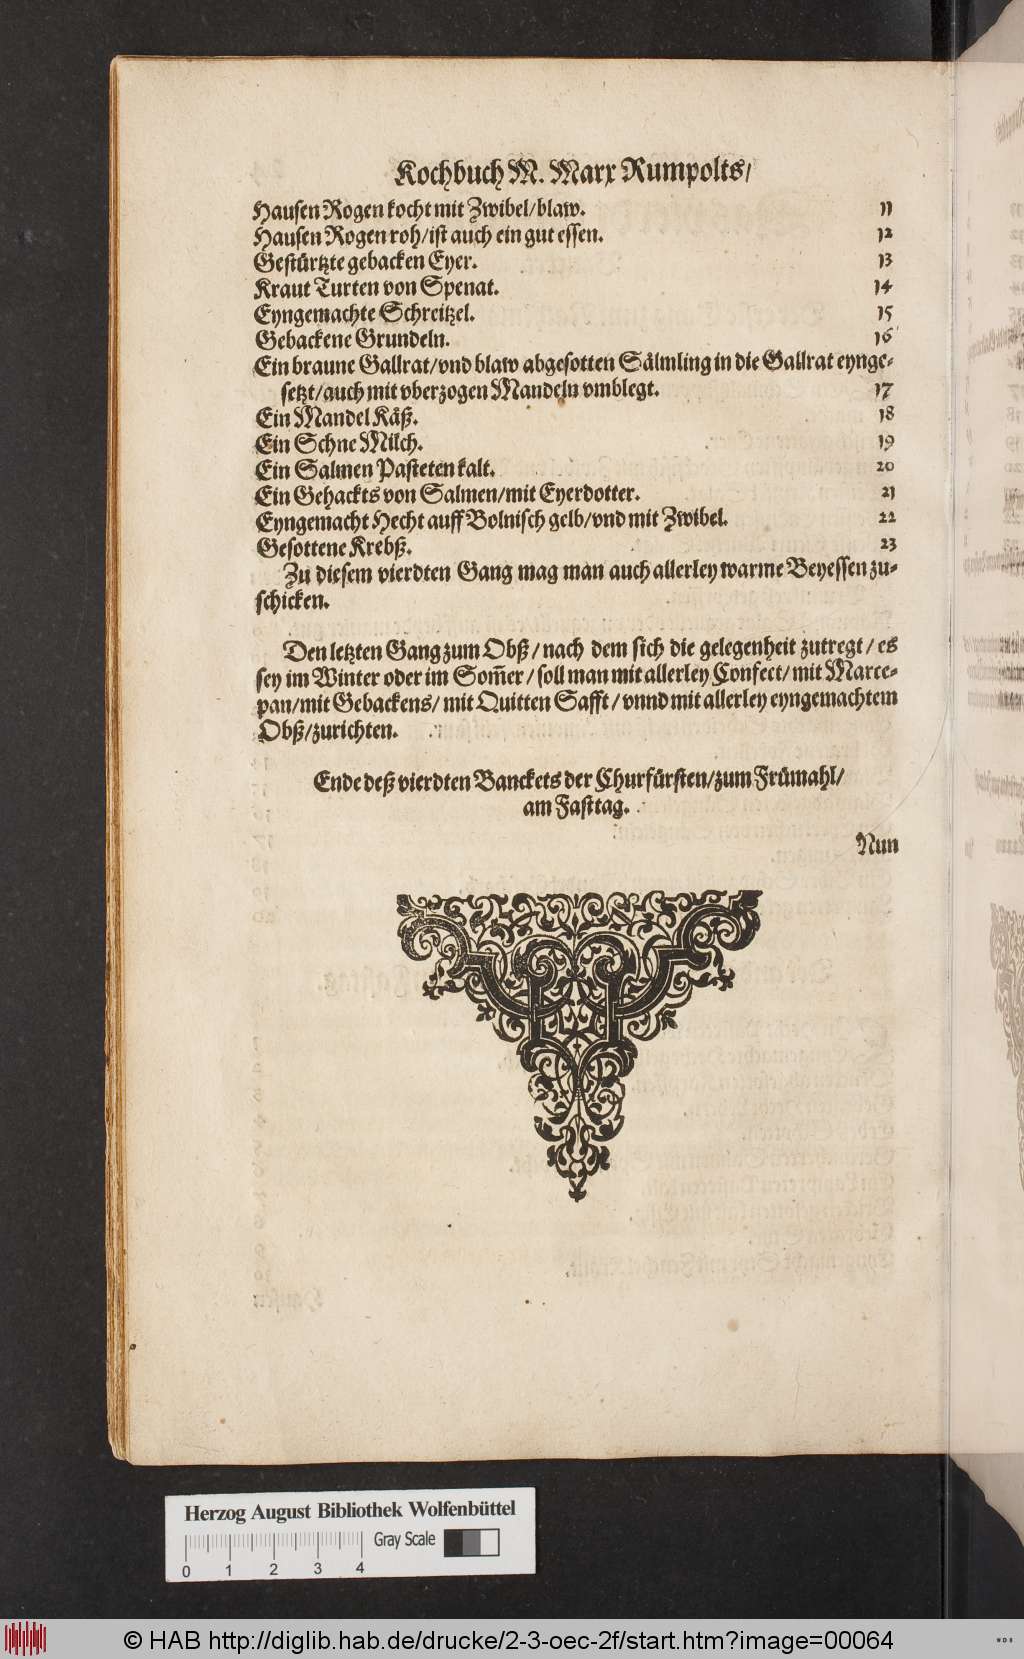 Kochbuch M. Marx Rumpolts/
Hausen Rogen kocht mit Zwibel/blaw. 11
Hausen Rogen roh/ist auch ein gut essen. 12
Gestürtzte gebacken Eyer. 13
Kraut Turten von Spenat. 14
Eyngemachte Schreitzel. 15
Gebackene Grundeln. 16
Ein braune Gallrat/vnd blaw abgesotten Sälmling in die Gallrat eynge-
setzt/auch mit vberzogen Mandeln vmblegt. 17
Ein Mandel Käß. 18
Ein Schne Milch. 19
Ein Salmen Pasteten kalt. 20
Ein Gehackts von Salmen/mit Eyerdotter. 21
Eyngemacht Hecht auff Bolnisch gelb/vnd mit Zwibel. 22
Gesottene Krebß. 23
Zu diesem vierdten Gang mag man auch allerley warme Beyessen zu-
schicken.
Den letzten Gang zum Obß/nach dem sich die gelegenheit zutregt/es
sey im Winter oder im Som̃er/soll man mit allerley Confect/mit Marce-
pan/mit Gebackens/mit Quitten Safft/vnnd mit allerley eyngemachtem
Obß/zurichten.
Ende deß vierdten Banckets der Churfürsten/zum Frümahl/
am Fasttag.
Nun
Herzog August Bibliothek Wolfenbüttel
Gray Scale
0 1 2 3 4
© HAB http://diglib.hab.de/drucke/2-3-oec-2f/start.htm?image=00064